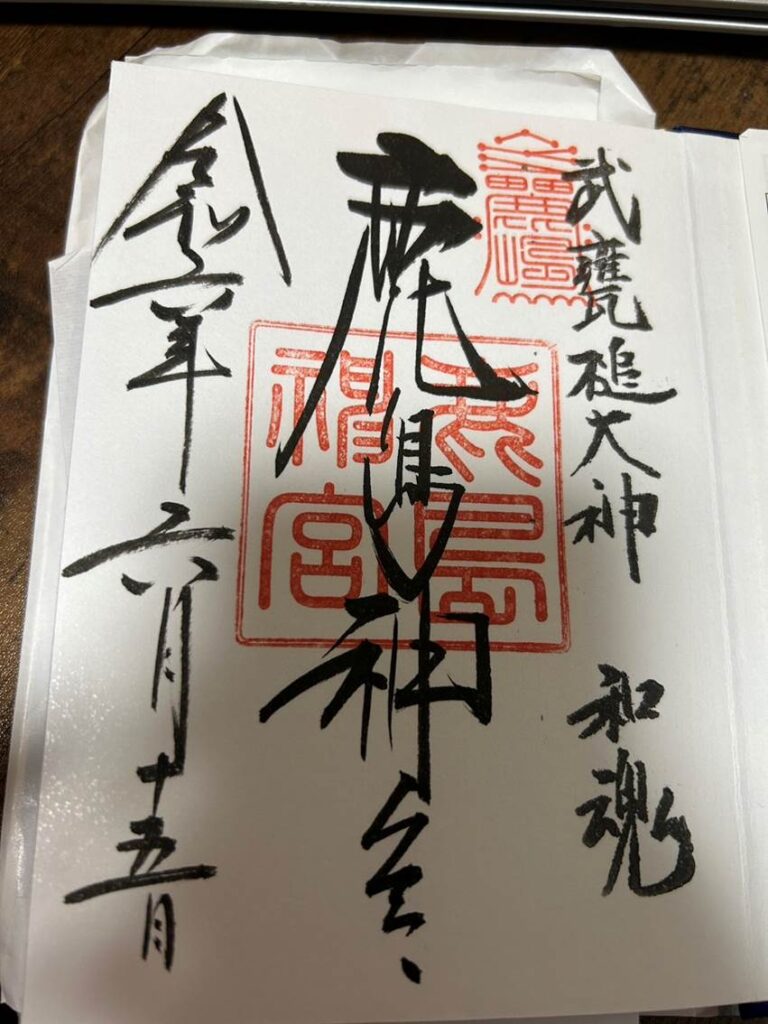 武甕槌大神 和魂
鹿島神宮
鹿島神宮
令和六年六月十五日